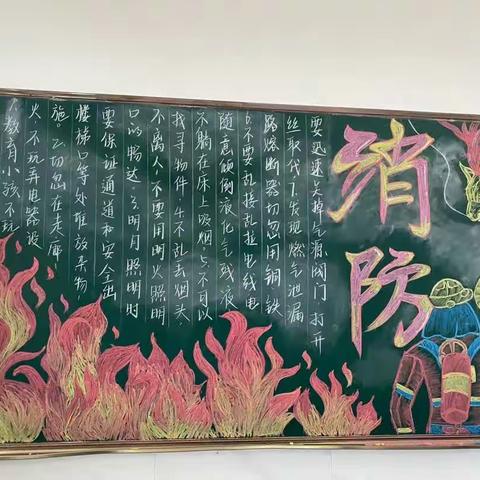 1.教育小孩不玩
火,不玩弄电器设
施。2.切忽在走廊
楼梯口等处堆放杂物,
要保证通道和安全出
口的畅达.3.明月照明时
不离人,不要用明火照明
找寻物件,4.不乱丢烟头,
不躺在床上吸烟.5.不可以
随意倾倒液化气残液
6.不要乱接乱拉电线电
路熔断器切忽用铜铁
丝取代7.发现燃气泄漏
要迅速关掉气源阀门 打开
消防